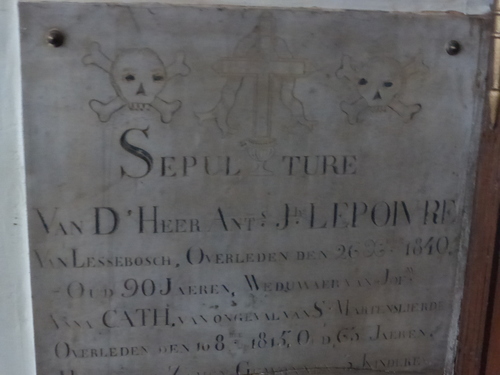 SEPULTURE
VAN D'HEER ANT: JH LEPOIVRE
VAN LESSEBOSCH, OVERLEDEN DEN 26 1840.
OUD 90 JAEREN, WEDUWAER VAN
CATH. VAN ONGEVAL VAN ST MARTENSLIERDE
OVERLEDEN DEN 10 8 1815, OUD 65 JAEREN,